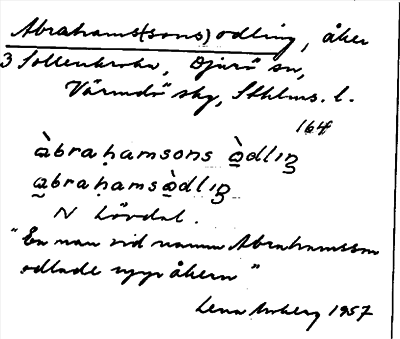 Abrahams(sons)odling, åker
3 Sollenkroka, Djurö sn,
Värmdö skg, Sthlms. l.
164
àbraḥamsons ò̲dlıŋ
a̲braḥamsò̲dlıŋ
N Lövdal.
"En man vid namn Abrahamsson
odlade upp åkern"
Lena Moberg 1957